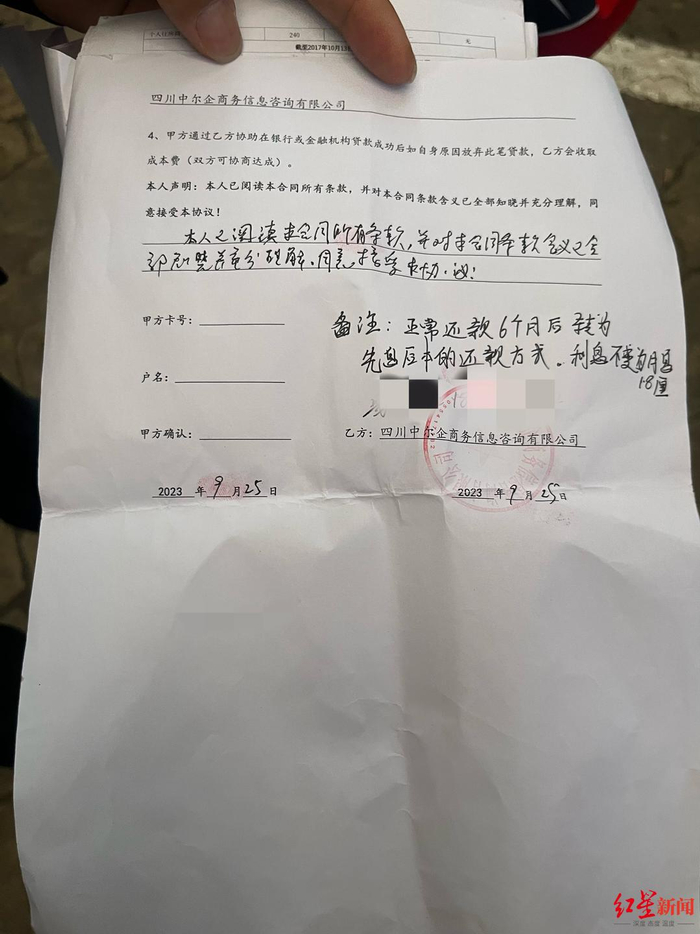 240
元
截至2017年10月13日
四川中尔企商务信息咨询有限公司
4、甲方通过乙方协助在银行或金融机构贷款成功后如自身原因放弃此笔贷款，乙方会收取
成本费（双方可协商达成）。
本人声明：本人已阅读本合同所有条款，并对本合同条款含义已全部知晓并充分理解，同
意接受本协议！
本人已阅读本合同所有条款，并对本合同条款含义已全
部知楚并充分理解，同意接受本协议！
备注：正常还款6个月后 转为
先息后本的还款方式。利息不变为月息
1.8厘
甲方卡号：
户名：
甲方确认：
乙方：四川中尔企商务信息咨询有限公司
2023 年 9 月 25 日
2023 年 9 月 25 日
红星新闻
深度 态度 温度